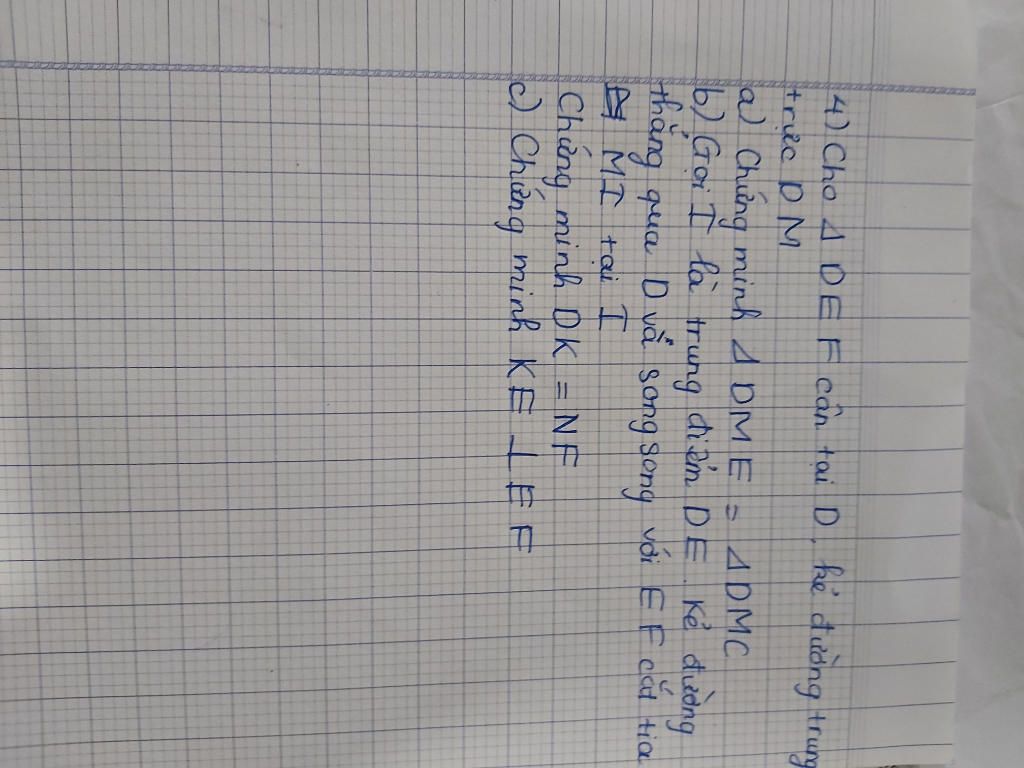 4) Cho Δ DEF cân tại D, kẻ đường trung
trực DM
a) Chứng minh Δ DME = ΔDMC
b) Gọi I là trung điểm DE. Kẻ đường
thẳng qua D và song song với EF cắt tia
MI tại I
Chứng minh DK = NF
c) Chứng minh KE ⊥ EF